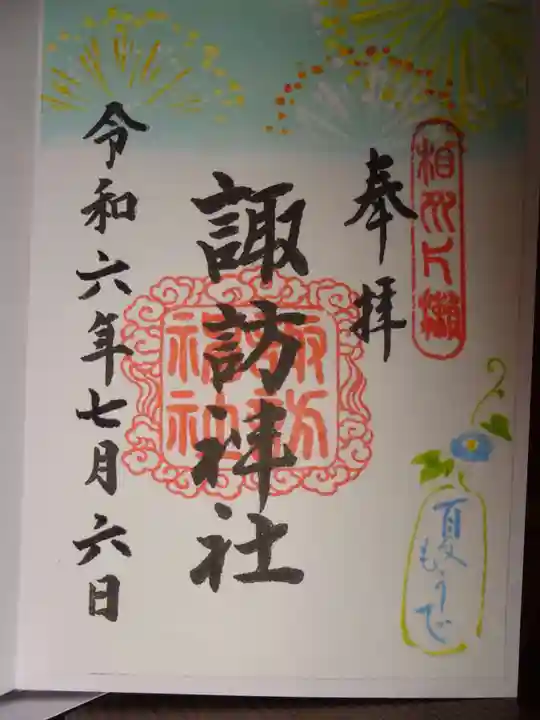 相州片瀬
奉拝
諏訪神社
諏訪神社
令和六年七月六日
夏もうで